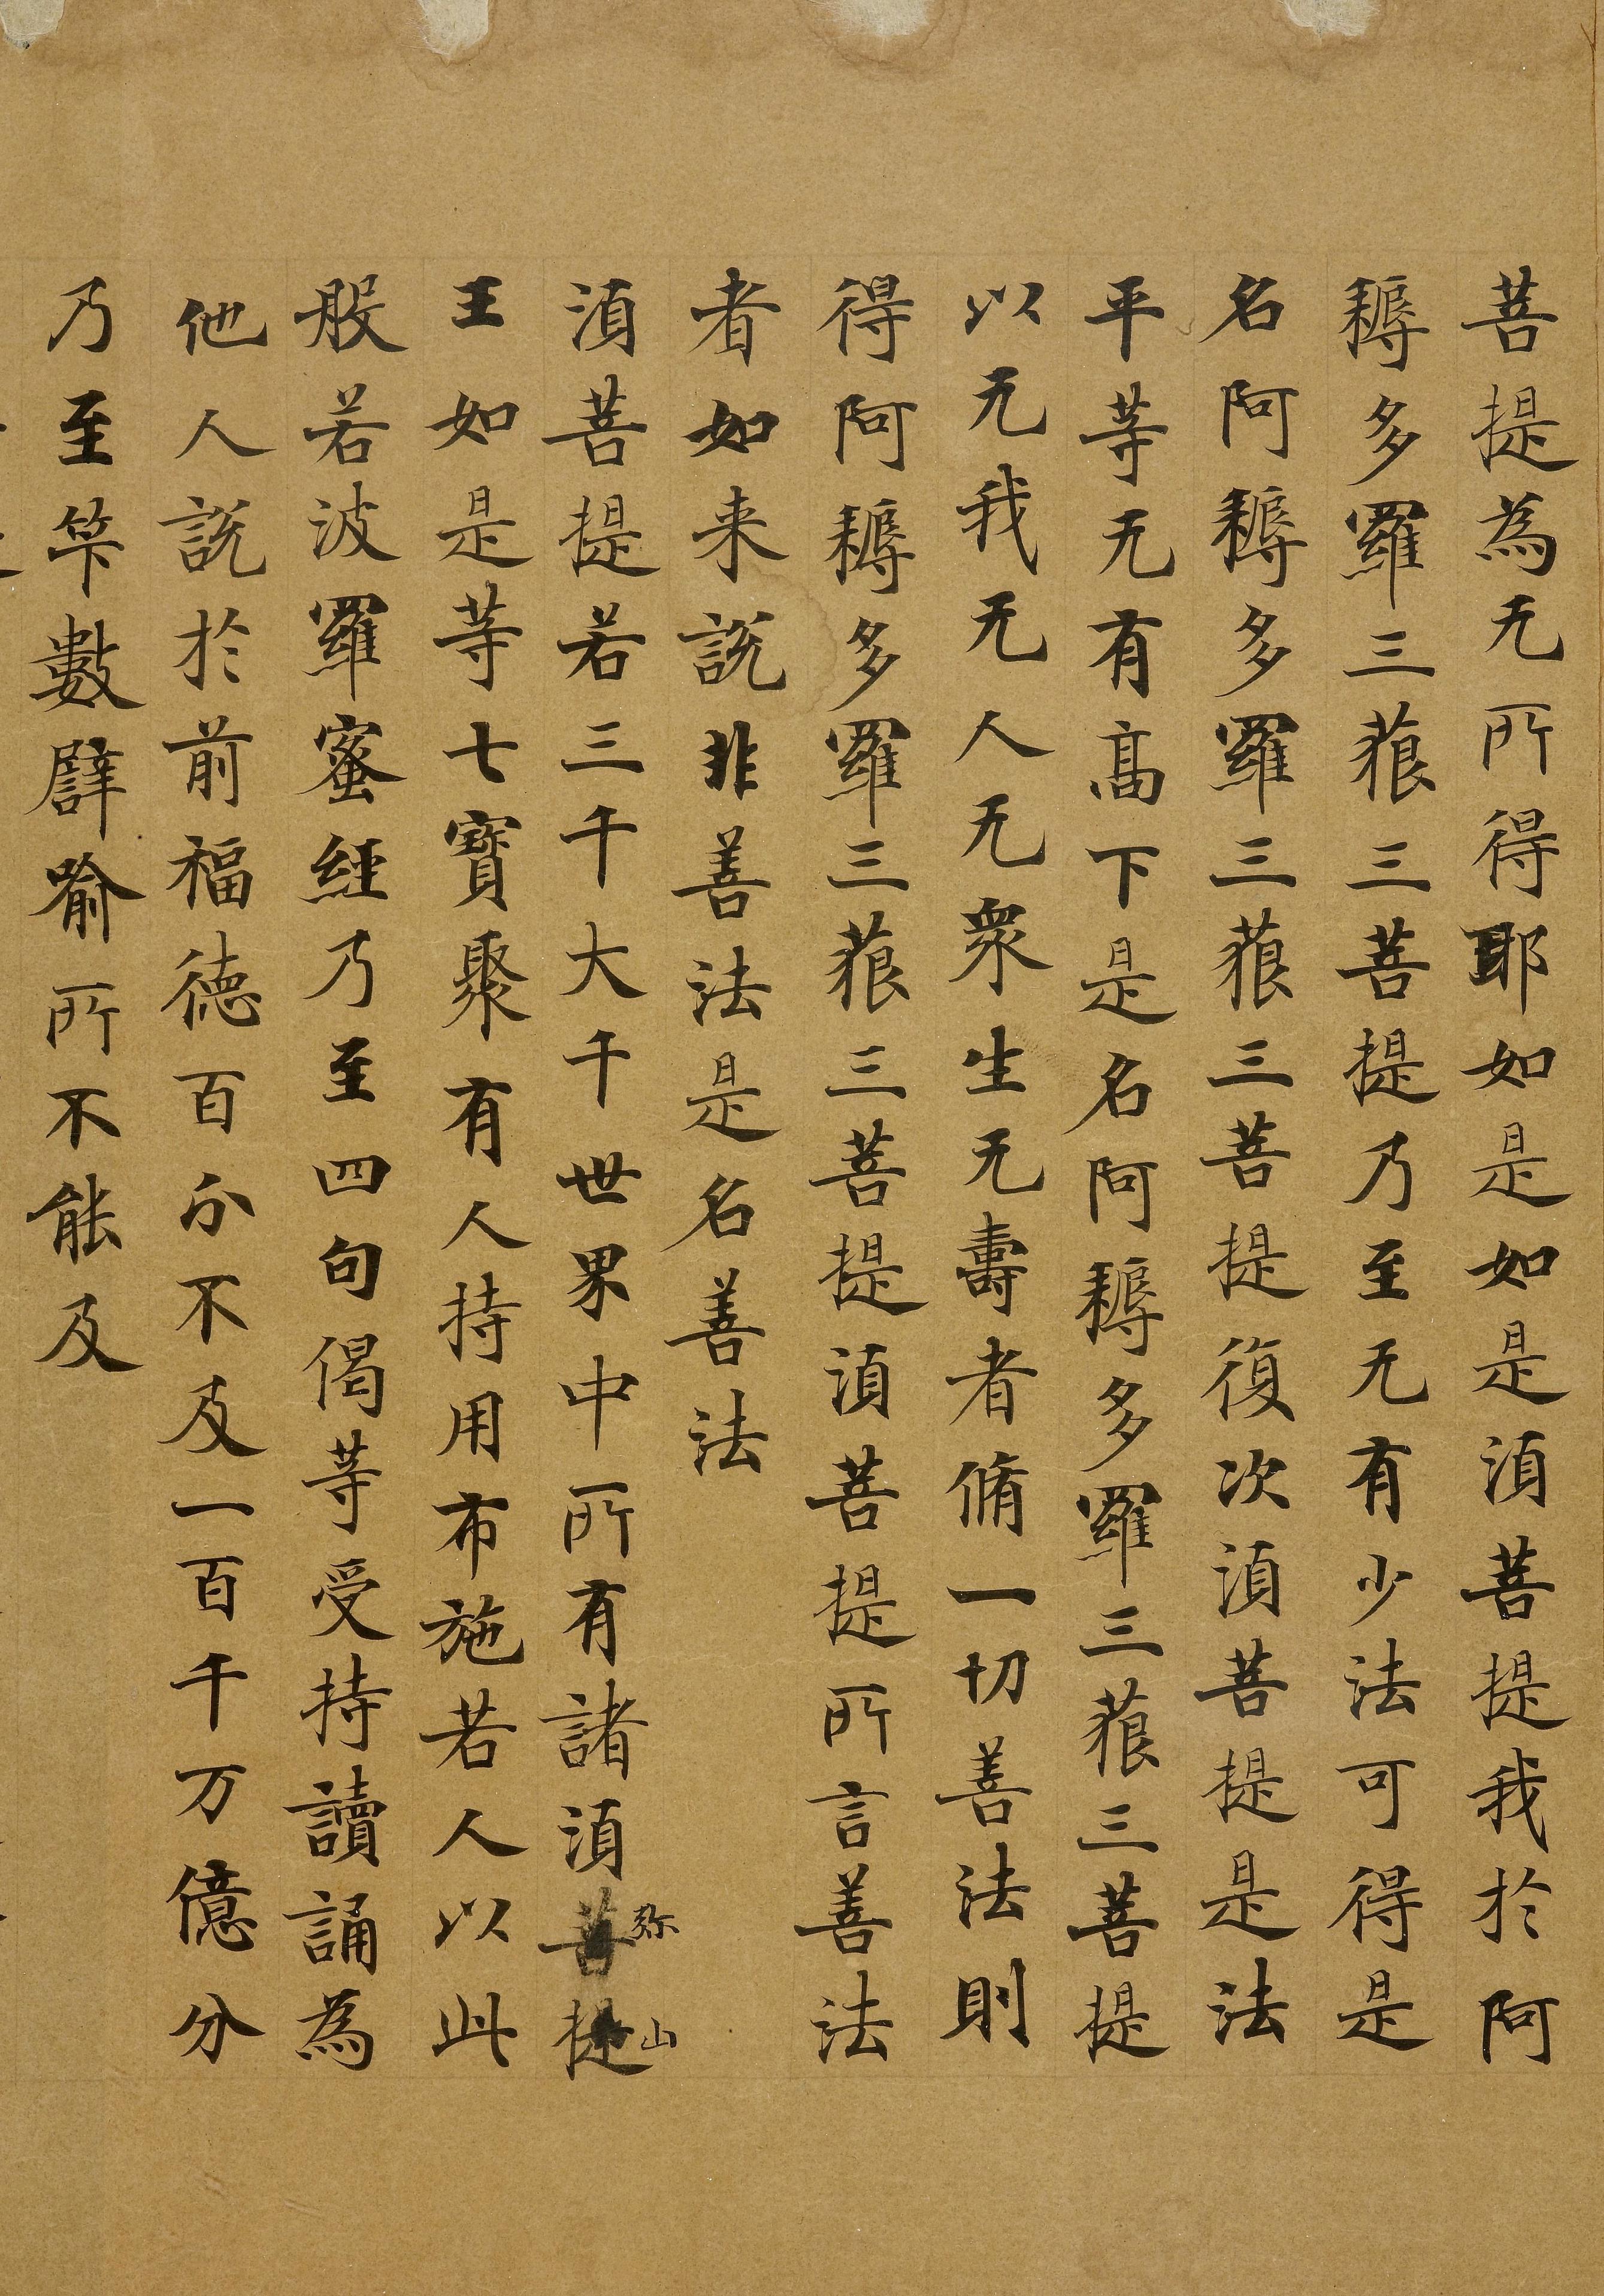 菩提為无所得耶如是如是湏菩提我於阿
耨多羅三藐三菩提乃至无有少法可得是
名阿耨多羅三藐三菩提復次湏菩提是法
平等无有髙下是名阿耨多羅三藐三菩提
以无我无人无衆生无壽者脩一切善法則
得阿耨多羅三藐三菩提湏菩提所言善法
者如来説非善法是名善法
湏菩提若三千大千世界中所有諸湏菩提
弥山
王如是等七寶聚有人持用布施若人以此
般若波羅蜜經乃至四句偈等受持讀誦為
他人説於前福德百分不及一百千万億分
乃至笇數譬喻所不能及